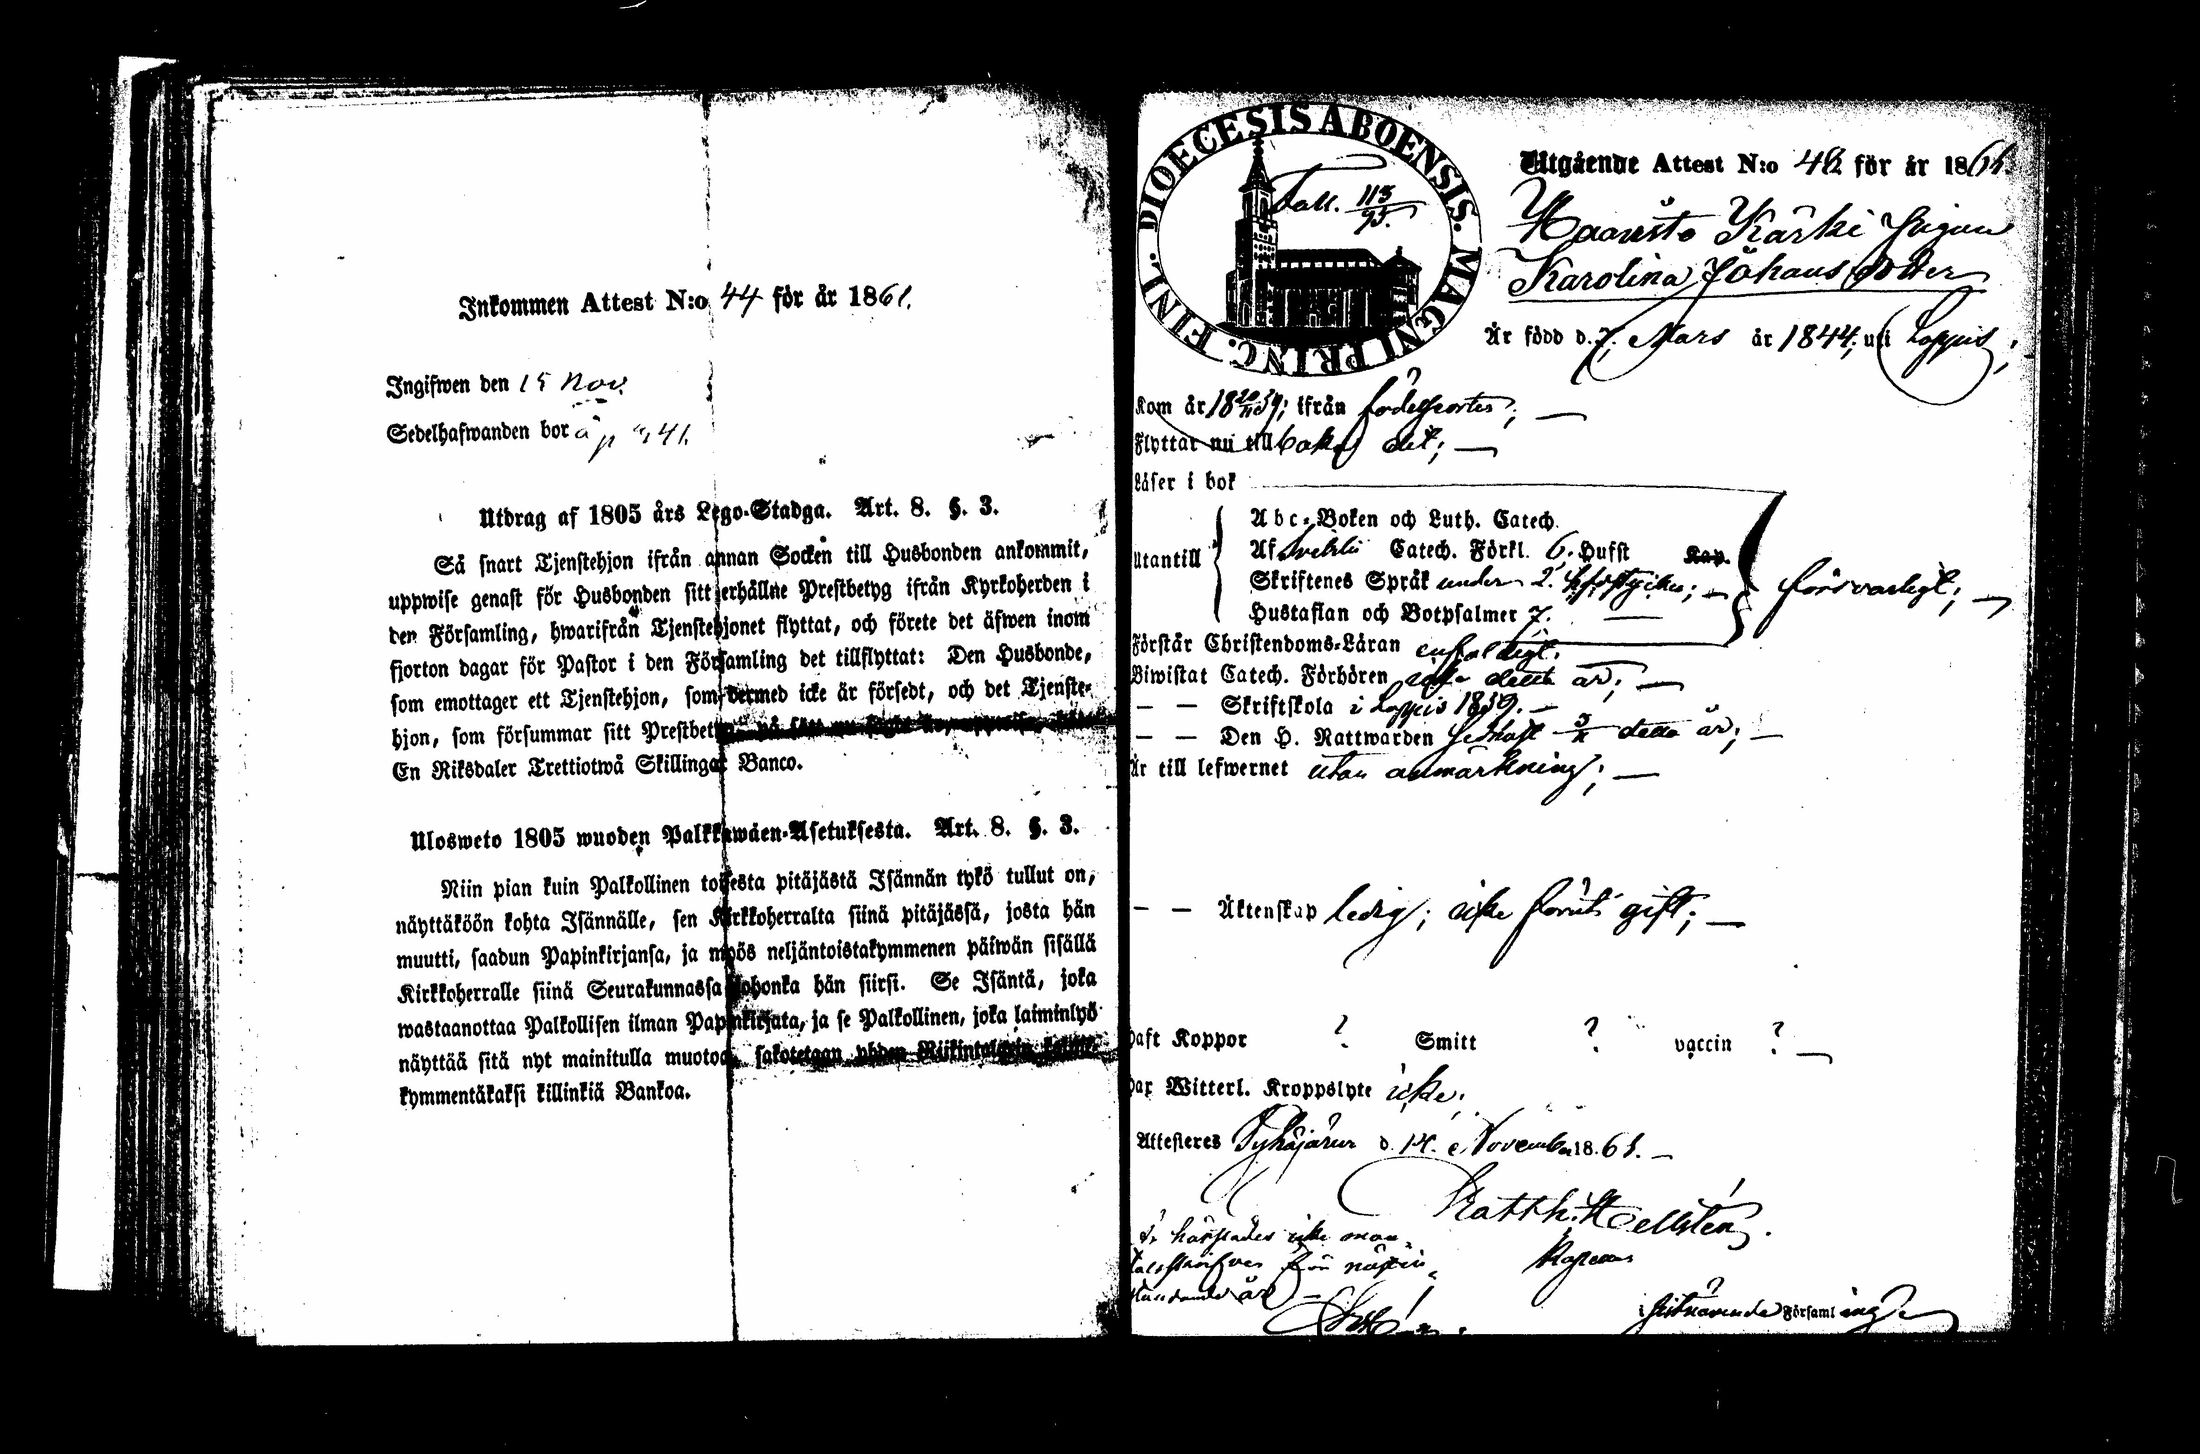 Inkommen Attest N:o 44 för år 1861.
Ingifwen den 15 Nov.
Sedelhafwanden bor å p 41.
Utdrag af 1805 års Lego-Stadga. Art. 8. §. 3.
Så snart Tjenstehjon ifrån annan Socken till Husbonden ankommit,
uppwise genast för Husbonden sitt erhållne Prestbetyg ifrån Kyrkoherden i
den Församling, hwarifrån Tjenstehjonet flyttat, och förete det äfwen inom
fjorton dagar för Pastor i den Församling det tillflyttat: Den Husbonde,
som emottager ett Tjenstehjon, som dermed icke är försedt, och det Tjenste-
hjon, som försummar sitt Prestbetyg på sätt nu sagdt är, uppwisa,
En Riksdaler Trettiotwå Skillingar Banco.
Ulosweto 1805 wuoden Palkkawäen-Asetuksesta. Art. 8. §. 3.
Niin pian kuin Palkollinen toisesta pitäjästä Isännän tykö tullut on,
näyttäköön kohta Isännälle, sen Kirkkoherralta siinä pitäjässä, josta hän
muutti, saadun Papinkirjansa, ja myös neljäntoistakymmenen päiwän sisällä
Kirkkoherralle siinä Seurakunnassa johonka hän siirsi. Se Isäntä, joka
wastaanottaa Palkollisen ilman Papinkirjata, ja se Palkollinen, joka laiminlyö
näyttää sitä nyt mainitulla muotoa, sakotetaan yhden Riikintalerin kolme-
kymmentäkaksi killinkiä Bankoa.
FINL. DIOECESIS ABOENSIS. MAGNI PRINC.
Tall. 113/95.
Utgående Attest N:o 42 för år 1861.
Haavisto Kärki Pigan
Karolina Johansdotter
Är född d. 7. Mars år 1844; uti Loppis;
Kom år 18 20/11 59; ifrån födelseorten;
Flyttar nu till baka dit;
Läser i bok
Utantill
Abc-Boken och Luth. Catech.
Af Svebelii Catech. Förkl. 6. Hufst Kap.
Skriftenes Språk under 2. hufstycket;
Hustaflan och Botpsalmer 7.
försvarligt;
Förstår Christendoms-Läran enfaldigt.
Biwistat Catech. Förhören detta år;
— — Skriftskola i Loppis 1859.
— — Den H. Nattwarden sednast detta år;
Är till lefwernet utan anmärkning;
— — Äktenskap ledig; icke förut gift;
Haft Koppor ? Smitt ? vaccin ?
Har Witterl. Kroppslyte icke.
Attesteres d. 14. November 1861.
Matth. Hellstén
Kapellan
i församling